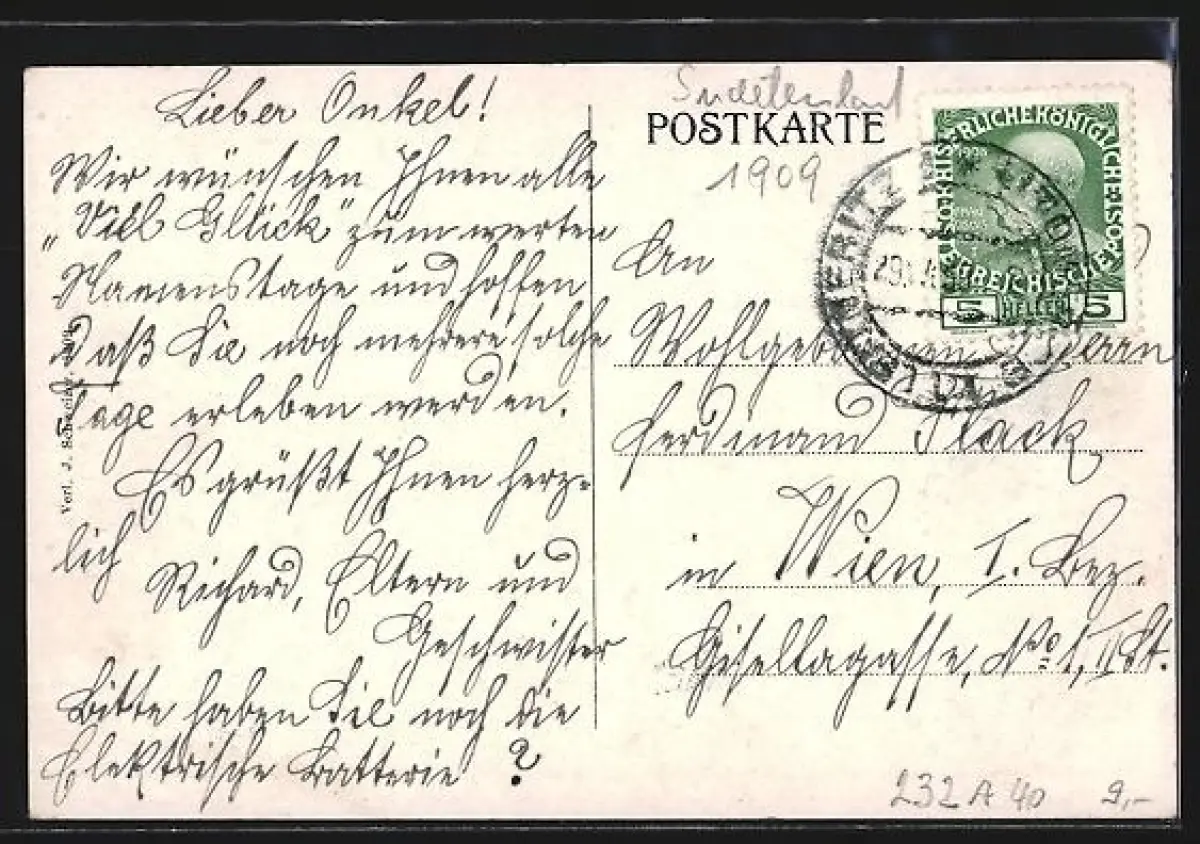 Lieber Onkel!
Wir wünschen Ihnen alle
„Viel Glück" zum werten
Namenstage und hoffen
daß Sie noch mehrere solche
Tage erleben werden.
Es grüßt Ihnen herz-
lich
Richard, Eltern und
Geschwister
Bitte haben Sie noch die
Elektrische Batterie?
Verl. J.
Sudetenland
POSTKARTE
1909
KAISERLICHE KÖNIGLICHE
ÖSTERREICHISCHE POST
5 HELLER 5
LEITMERITZ
An
Wohlgeborenen Herrn
Ferdinand Flack
in Wien, I. Bez.
Gisellagasse, No 1, II St.
232 A 40 9,-